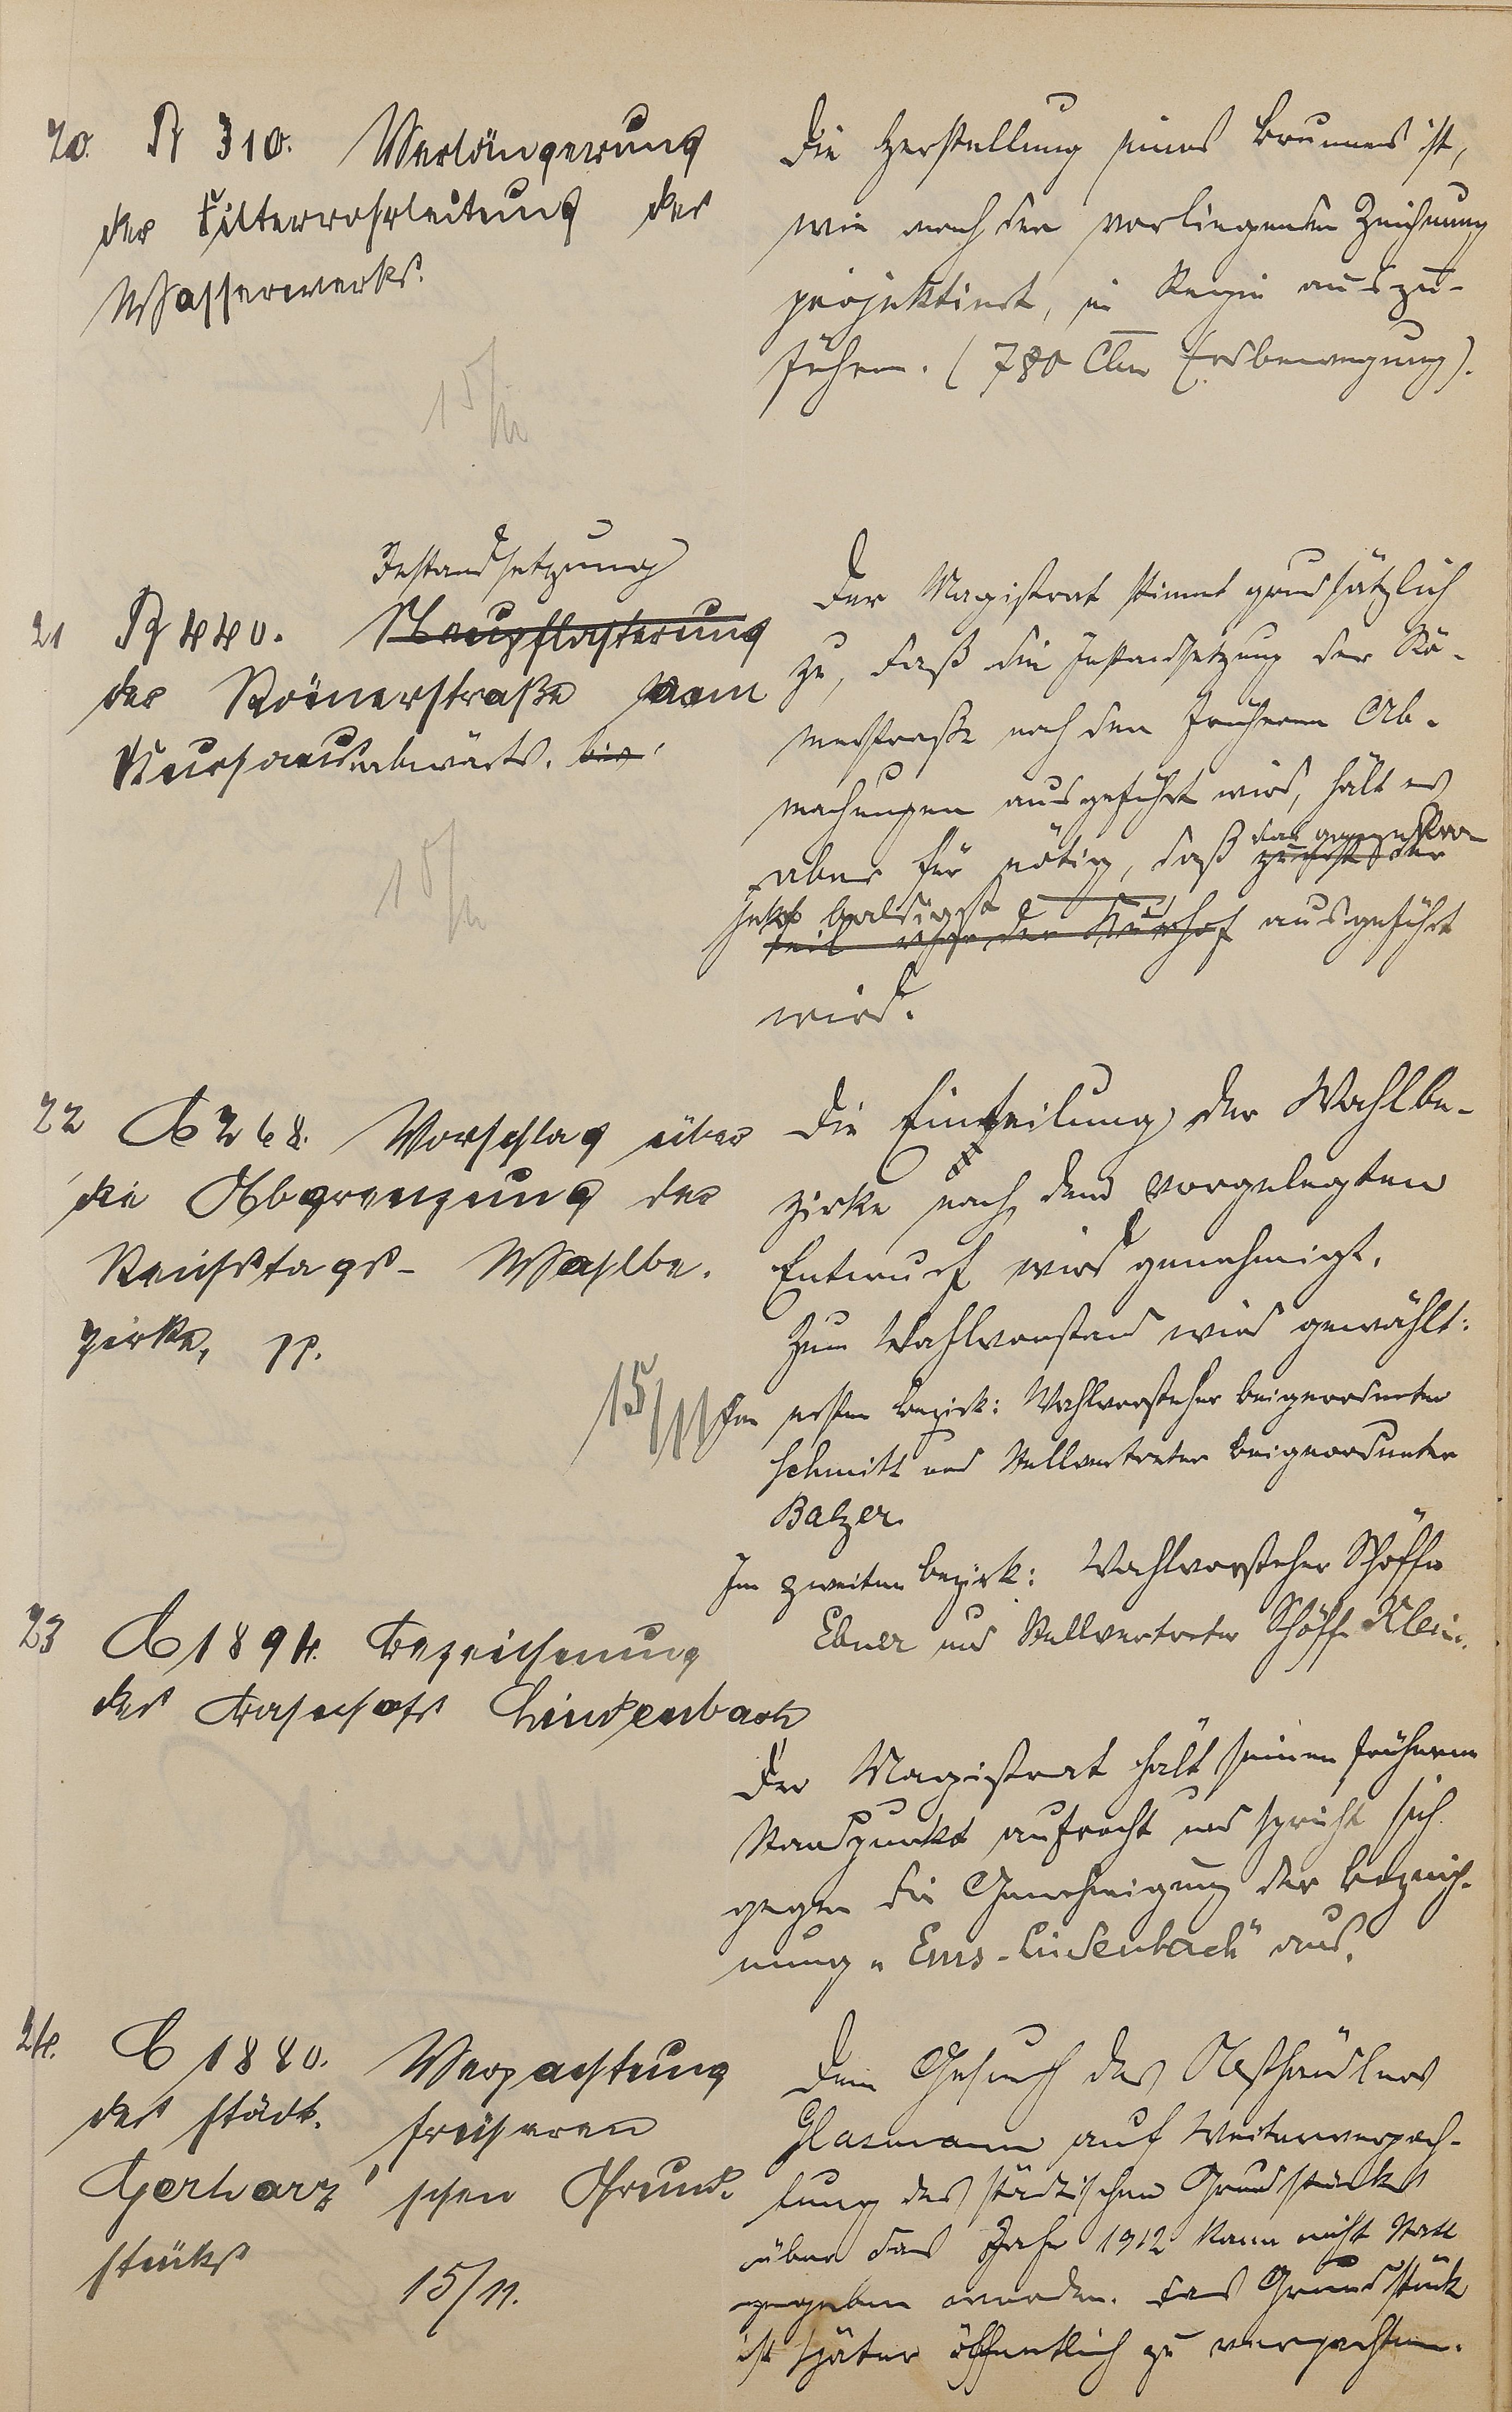 20. R 310. Verlängerung
der Filterrohrleitung des
Wasserwerks.
15/11
Die Herstellung eines Brunnens ist,
wie nach der vorliegenden Zeichnung
projektiert, in Regie auszu-
führen. (780 Cbm Erdbewegung).
Instandsetzung
21 R 440. Neupflasterung
der Römerstraße vom
Kursaal abwärts. bis
15/11
Der Magistrat stimmt grundsätzlich
zu, daß die Instandsetzung der Rö-
merstraße nach den früheren Ab-
machungen ausgeführt wird, hält es
das ganze Pro-
aber für nötig, daß zuerst der
jekt baldigst
teil der Kurhof ausgeführt
wird.
22 A 268. Vorschlag über
die Abgrenzung der
Reichstags-Wahlbe-
zirke, pp.
15/11
Die Einteilung der Wahlbe-
zirke nach dem vorgelegten
Entwurf wird genehmigt.
Zum Wahlvorstand wird gewählt:
Im ersten Bezirk: Wahlvorsteher Beigeordneter
Schmitt und Stellvertreter Beigeordneter
Balzer.
Im zweiten Bezirk: Wahlvorsteher Schöffe
Ebner und Stellvertreter Schöffe Klein.
23 A 1894. Bezeichnung
des Bahnhofs Lindenbach
Der Magistrat hält seinen früheren
Standpunkt aufrecht und spricht sich
gegen die Genehmigung der Bezeich-
nung „Ems-Lindenbach" aus.
24. C 1880. Verpachtung
des städt. früheren
Gerharz'schen Grund-
stücks
15/11.
Dem Gesuch des Obsthändlers
Glasmann auf Weiterverpach-
tung des städtischen Grundstücks
über das Jahr 1912 kann nicht statt
gegeben werden. Das Grundstück
ist später öffentlich zu verpachten.